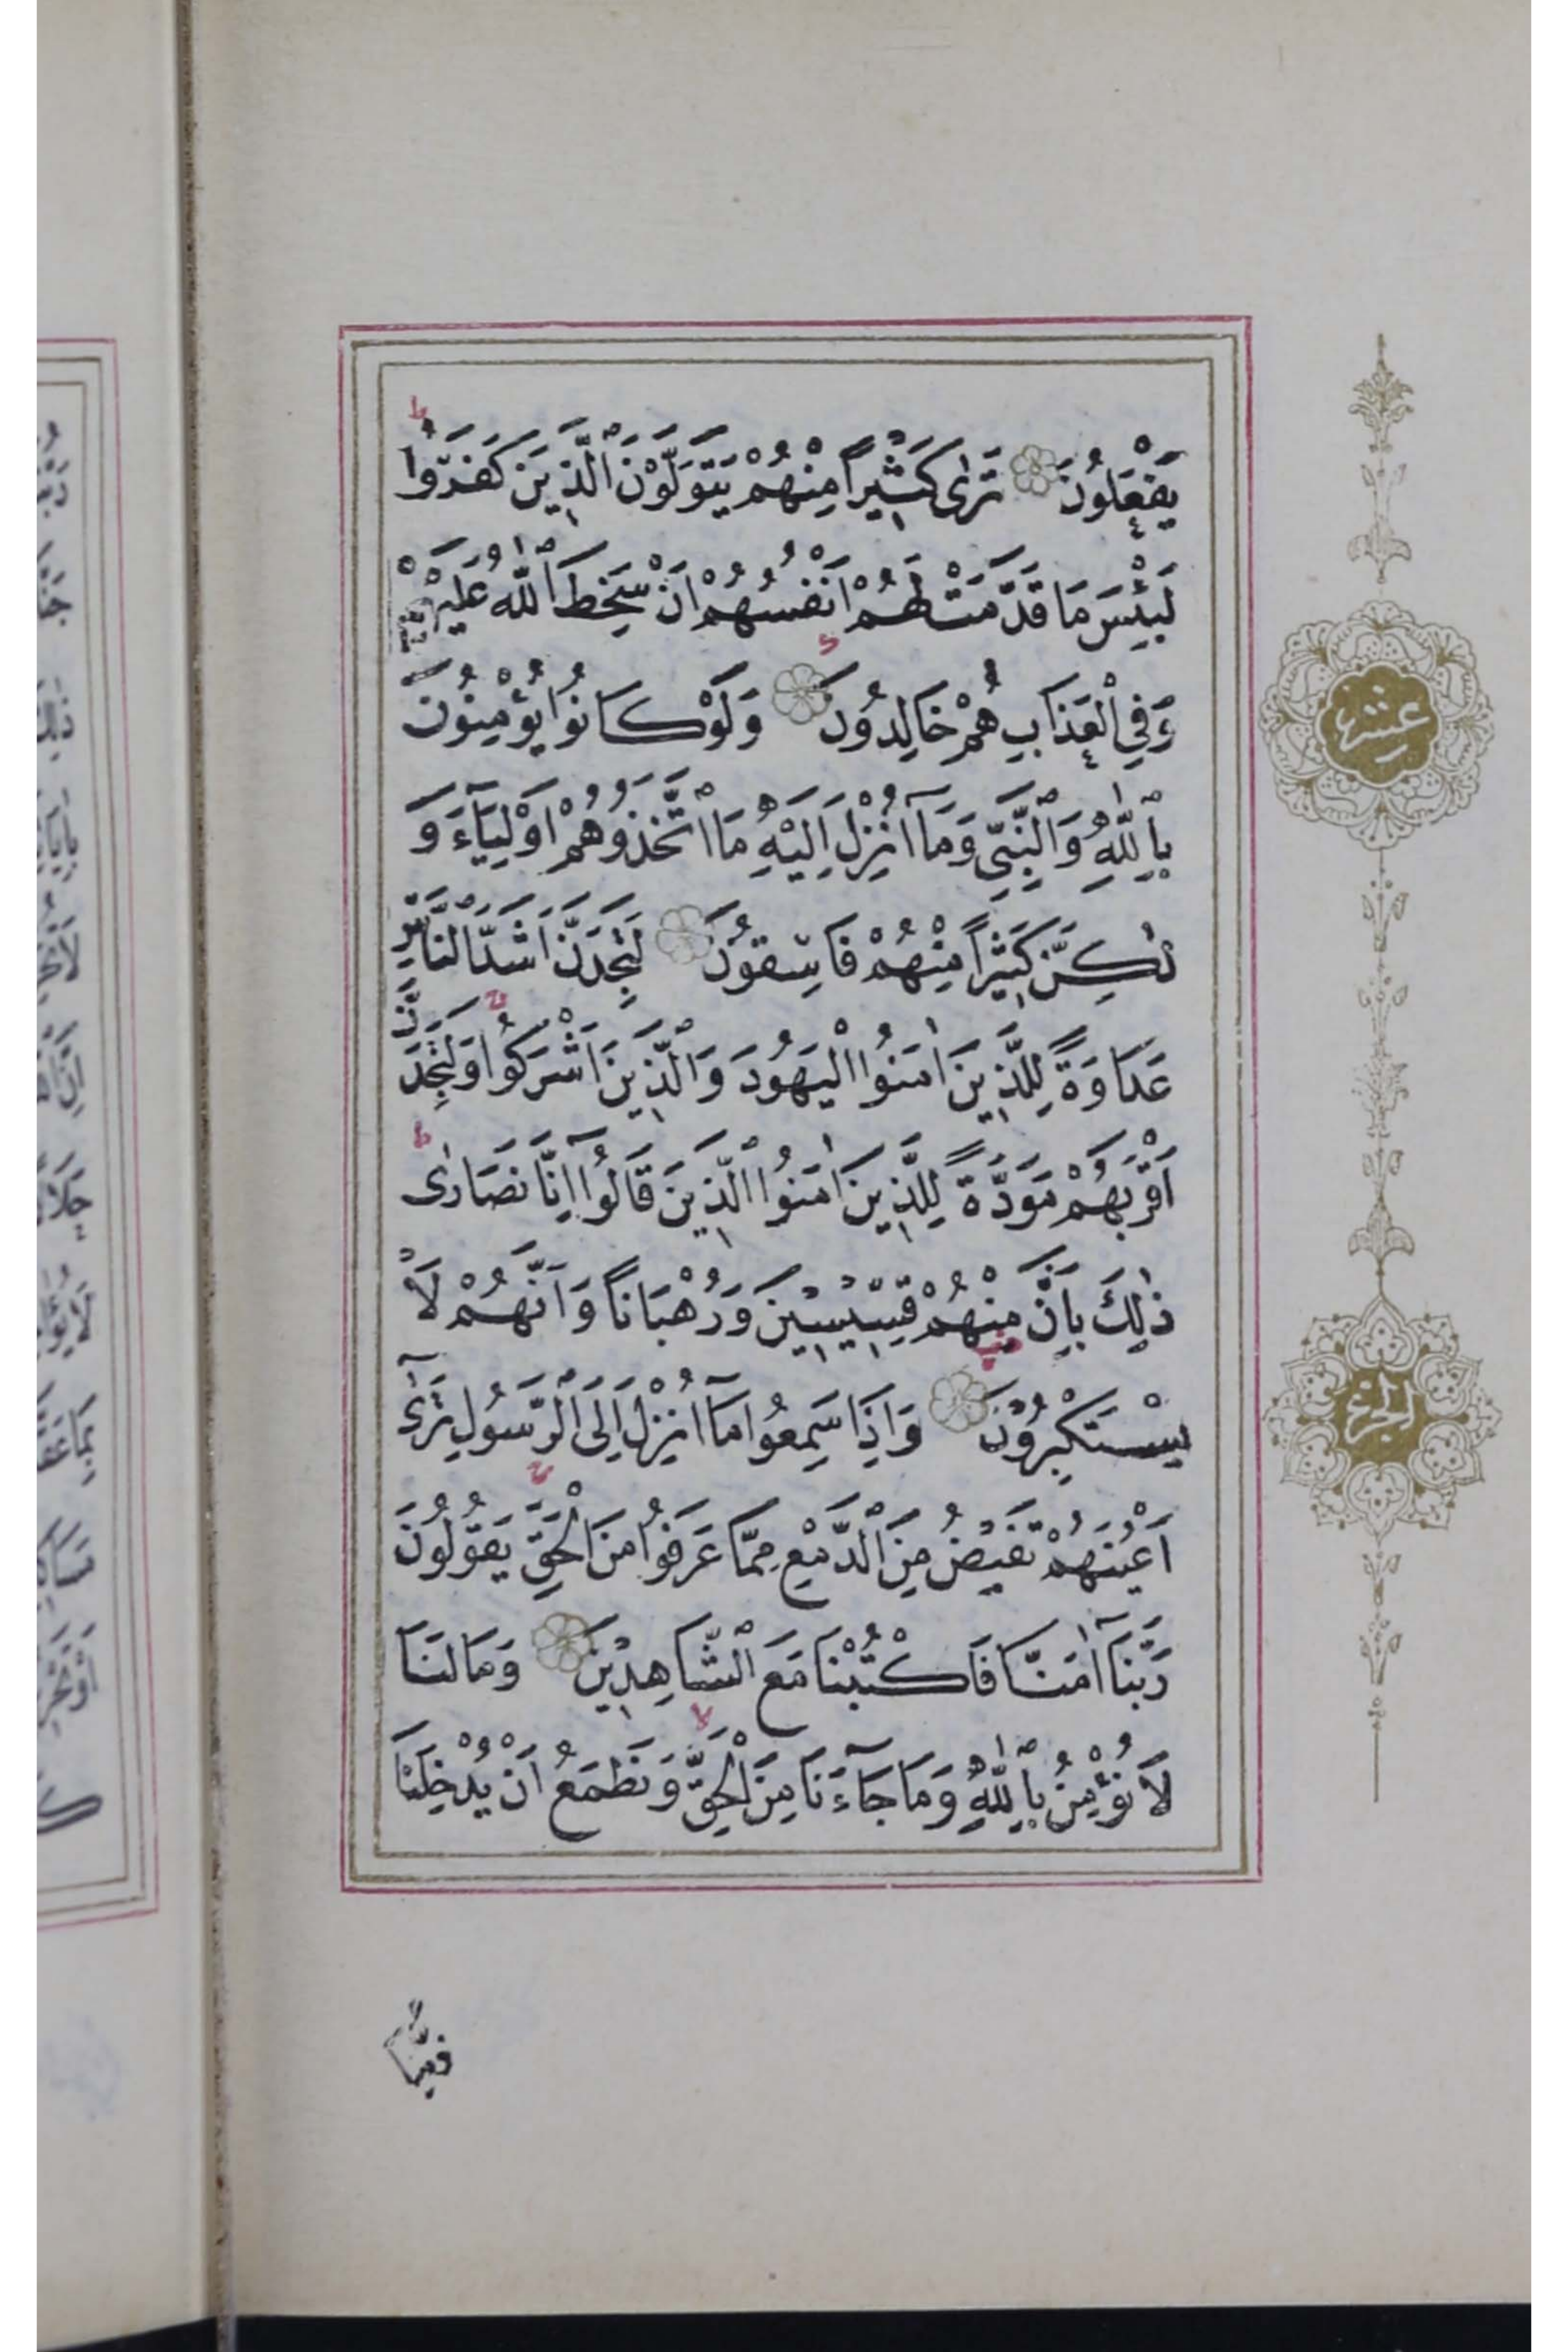 يَفْعَلُونَ تَرٰى كَثٖيرًا مِنْهُمْ يَتَوَلَّوْنَ الَّذٖينَ كَفَرُوا
لَبِئْسَ مَا قَدَّمَتْ لَهُمْ اَنْفُسُهُمْ اَنْ سَخِطَ اللّٰهُ عَلَيْهِمْ
وَفِي الْعَذَابِ هُمْ خَالِدُونَ وَلَوْ كَانُوا يُؤْمِنُونَ
بِاللّٰهِ وَالنَّبِيِّ وَمَٓا اُنْزِلَ اِلَيْهِ مَا اتَّخَذُوهُمْ اَوْلِيَٓاءَ وَ
لٰكِنَّ كَثٖيرًا مِنْهُمْ فَاسِقُونَ لَتَجِدَنَّ اَشَدَّ النَّاسِ
عَدَاوَةً لِلَّذٖينَ اٰمَنُوا الْيَهُودَ وَالَّذٖينَ اَشْرَكُوا وَلَتَجِدَنَّ
اَقْرَبَهُمْ مَوَدَّةً لِلَّذٖينَ اٰمَنُوا الَّذٖينَ قَالُٓوا اِنَّا نَصَارٰى
ذٰلِكَ بِاَنَّ مِنْهُمْ قِسّٖيسٖينَ وَرُهْبَانًا وَاَنَّهُمْ لَا
يَسْتَكْبِرُونَ وَاِذَا سَمِعُوا مَٓا اُنْزِلَ اِلَى الرَّسُولِ تَرٰٓى
اَعْيُنَهُمْ تَفٖيضُ مِنَ الدَّمْعِ مِمَّا عَرَفُوا مِنَ الْحَقِّ يَقُولُونَ
رَبَّنَٓا اٰمَنَّا فَاكْتُبْنَا مَعَ الشَّاهِدٖينَ وَمَا لَنَا
لَا نُؤْمِنُ بِاللّٰهِ وَمَا جَٓاءَنَا مِنَ الْحَقِّ وَنَطْمَعُ اَنْ يُدْخِلَنَا
عشر
الجزء